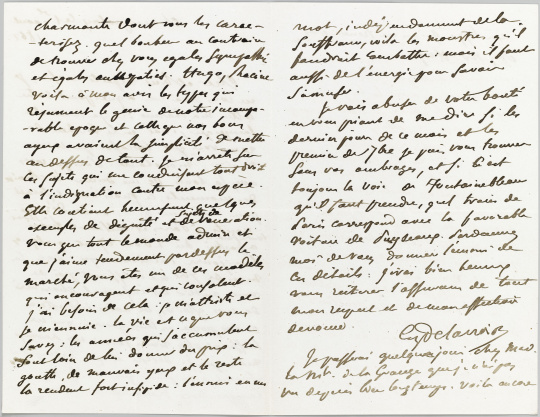 charmante dont vous les carac-
térisez. quel bonheur au contraire
de trouver chez vous egales sympathies
et egales antipathies : Hugo, Racine
voila à mon avis les types qui
resument le genie de notre incompa-
rable epoque et celle que nos bons
ayeux avaient la simplicité de mettre
au dessus de tout. je m'arrete sur
ces sujets qui me conduiraient tout droit
à l'indignation contre mon espece.
Elle contient heureusement quelques
exemples de dignité et de veneration.
vous que tout le monde admire et
que j'aime tendrement par dessus le
marché, vous etes un de ces modeles
qui encouragent et qui consolent.
j'ai besoin de cela : je m'attriste et
je m'ennuie. la vie est ce que vous
savez : les années qui s'accumulent
sont loin de lui donner du prix : la
goutte, de mauvais yeux et le reste
la rendent fort insipide : l'ennui en un
mot, indépendamment de la
souffrance, voila les monstres qu'il
faudrait combattre : mais il faut
aussi de l'énergie pour savoir
s'amuser.
Je vais abuser de votre bonté
en vous priant de me dire si les
derniers jours de ce mois et les
premiers de 7bre je puis vous trouver
sous vos ombrages, et si c'est
toujours la voie de Fontainebleau
qu'il faut prendre, quel train de
Paris correspond avec la favorable
voiture de . Pardonnez
moi de vous donner l'ennui de
ces détails : j'irai bien heureux
vous réitérer l'assurance de tout
mon respect et de mon affection
devouée
Eug Delacroix
Je passerai quelques jours chez Mad.
la de la Grange que je n'ai pas
vu depuis bien longtemps. voila encore